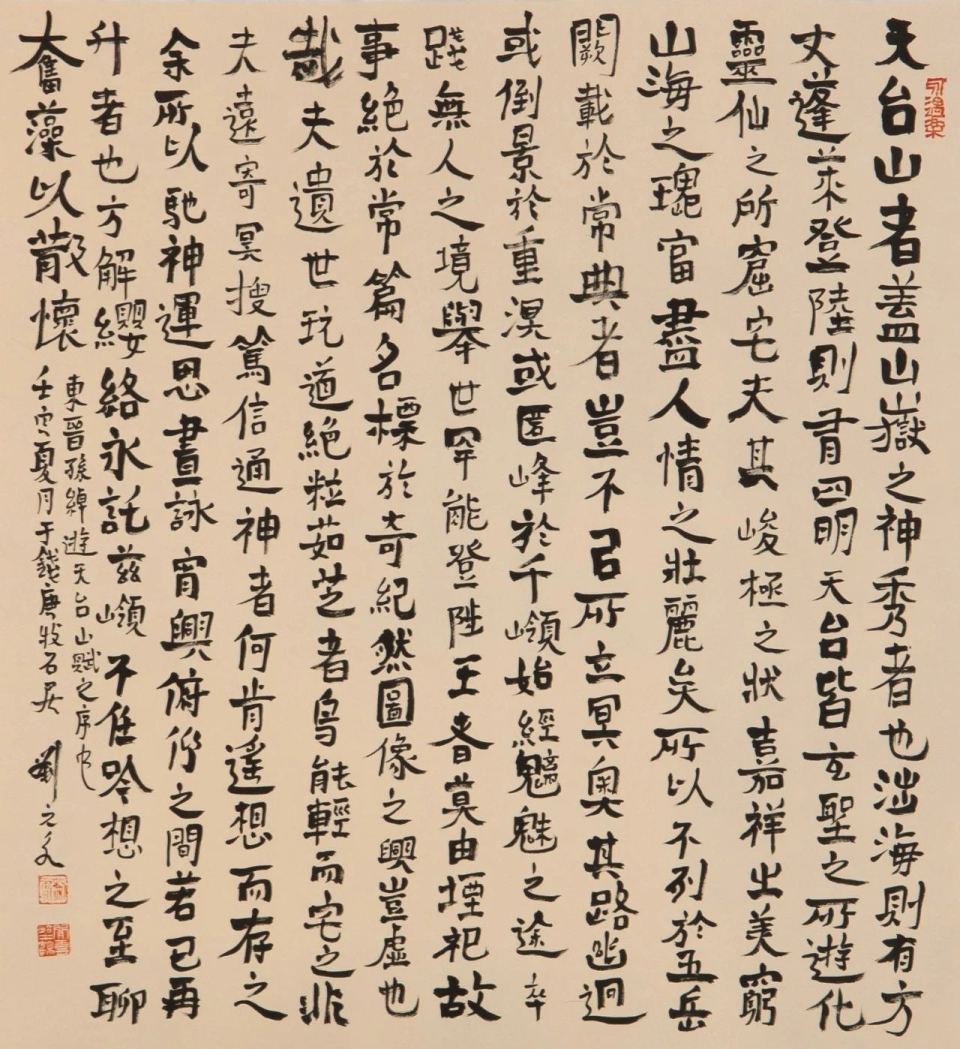 天台山者蓋山嶽之神秀者也涉海則有方
丈蓬萊登陸則有四明天台皆玄聖之所遊化
靈仙之所窟宅夫其峻極之狀嘉祥之美窮
山海之瑰富盡人情之壯麗矣所以不列於五岳
闕載於常典者豈不以所立冥奧其路幽迥
或倒景於重溟或匿峰於千嶺始經魑魅之途卒
踐無人之境舉世罕能登陟王者莫由堙祀故
事絕於常篇名標於奇紀然圖像之興豈虛也
哉夫遺世玩道絕粒茹芝者烏能輕而宅之非
夫遠寄冥搜篤信通神者何肯遙想而存之
余所以馳神運思晝詠宵興俯仰之間若已再
升者也方解纓絡永託茲嶺不任吟想之至聊
奮藻以散懷
東晉孫綽遊天台山賦之序也
壬寅夏月于錢唐牧石居 劉